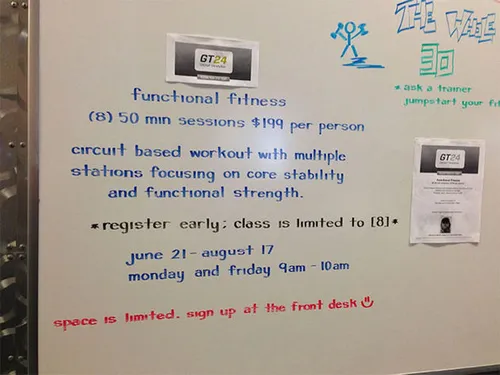 GT24
functional fitness
(8) 50 min sessions $199 per person
circuit based workout with multiple
stations focusing on core stability
and functional strength.
*register early; class is limited to [8]*
june 21 - august 17
monday and friday 9am - 10am
space is limited. sign up at the front desk
THE WHOLE
30
*ask a trainer
jumpstart your fit
GT24